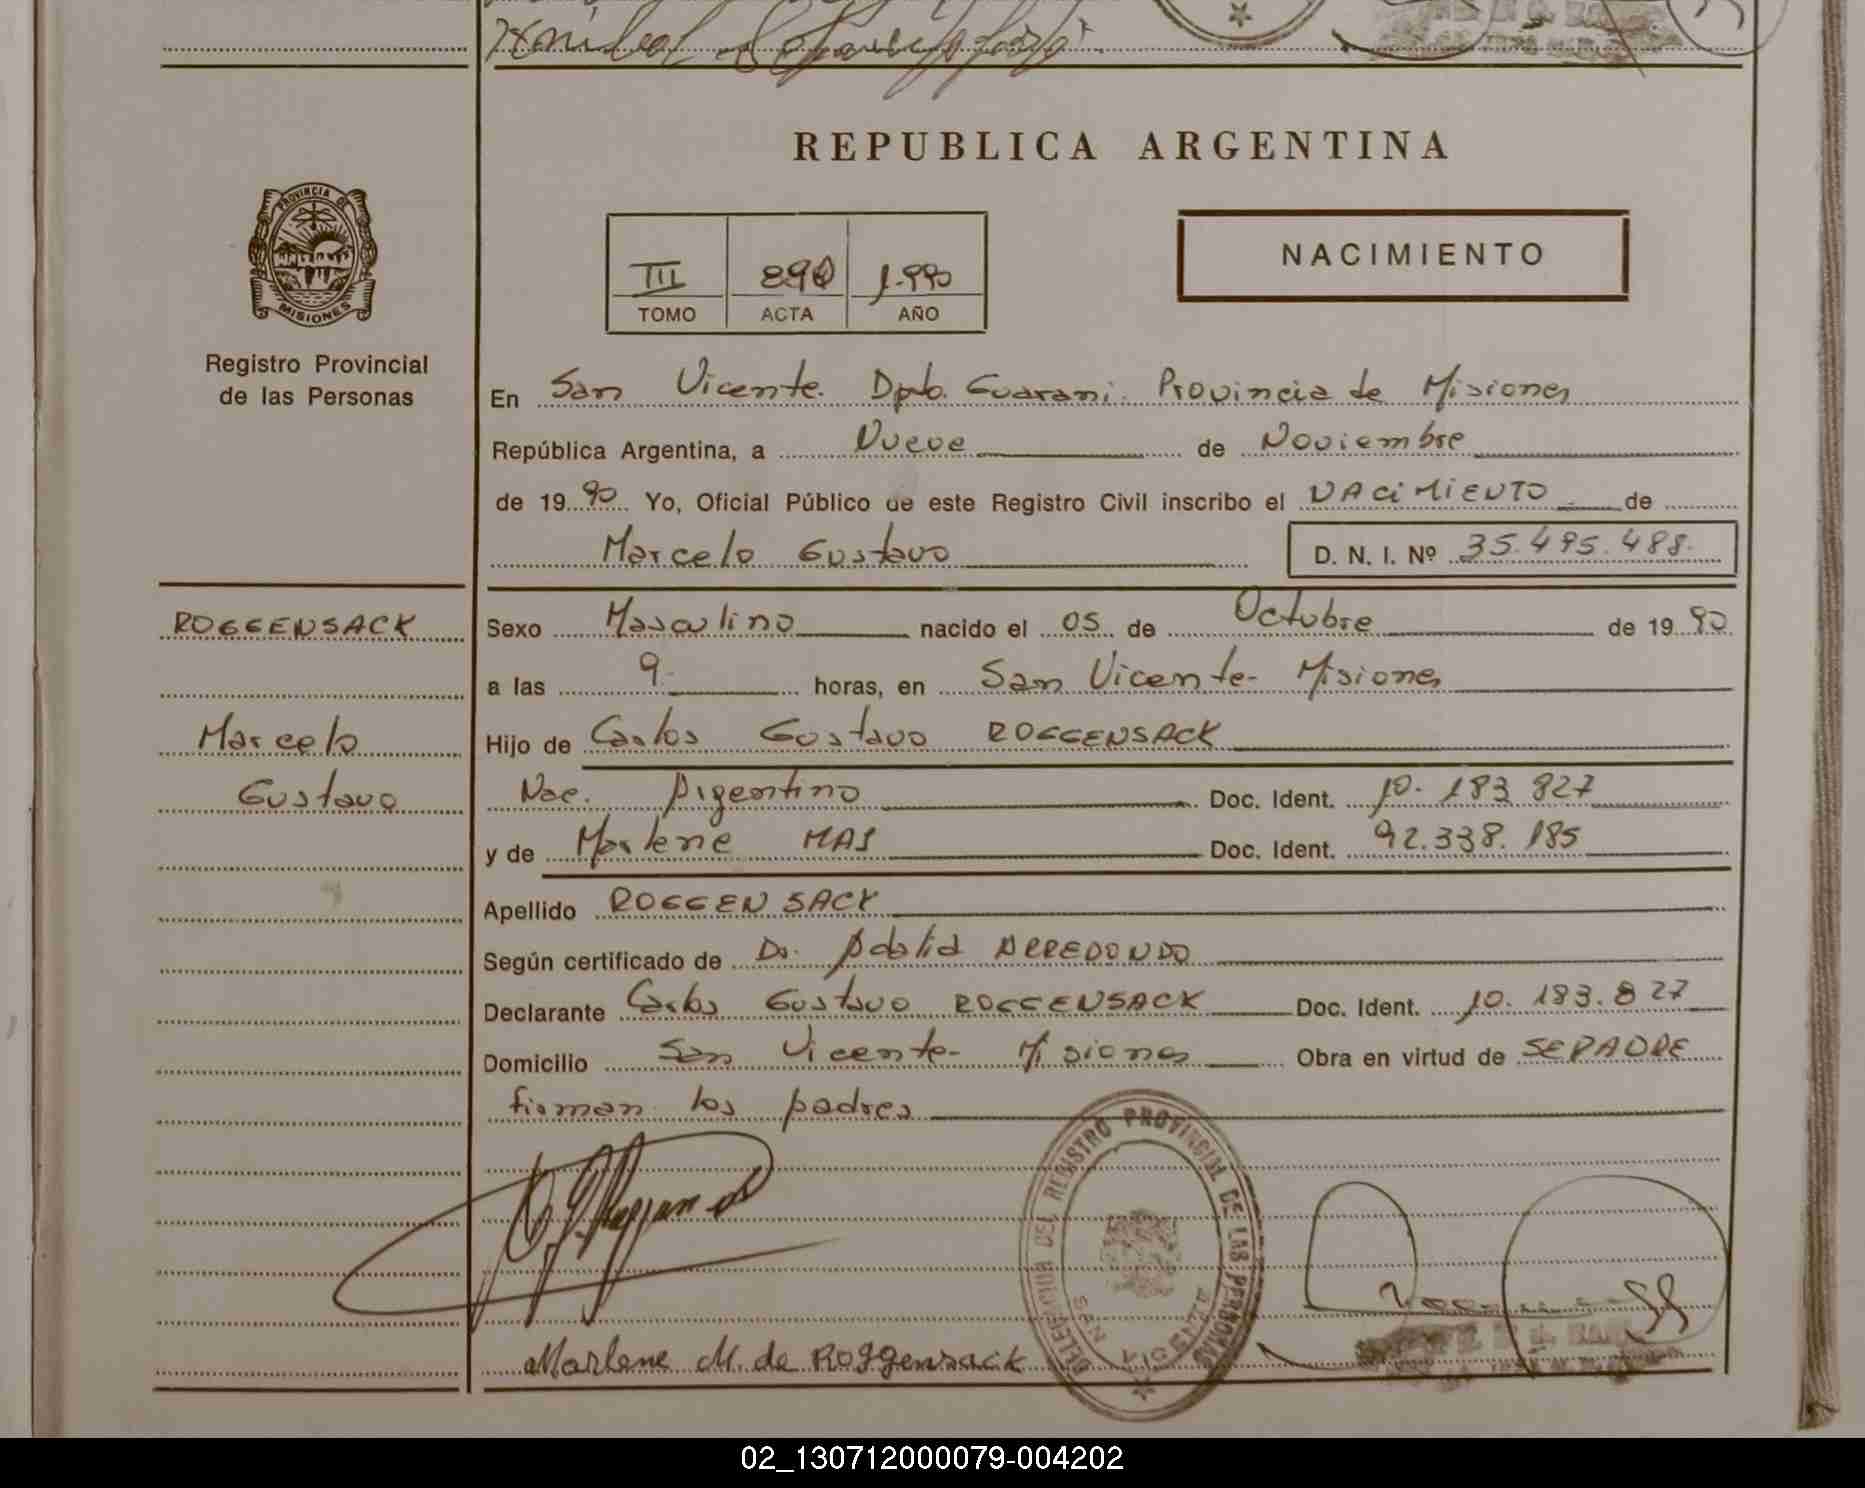 REPUBLICA ARGENTINA
PROVINCIA DE
MISIONES
Registro Provincial
de las Personas
III 1.990
TOMO ACTA AÑO
NACIMIENTO
En San Vicente. Dpto. Guarani. Provincia de Misiones
República Argentina, a Nueve de Noviembre
de 19 90 Yo, Oficial Público de este Registro Civil inscribo el NACIMIENTO de
Marcelo Gustavo D. N. I. Nº 35.495.488.
ROGGENSACK
Marcelo
Gustavo
Sexo Masculino nacido el 05 de Octubre de 19 90
a las 9 horas, en San Vicente- Misiones
Hijo de Carlos Gustavo ROGGENSACK
Nac. Argentino Doc. Ident. 10.183 827
y de Marlene MAS Doc. Ident. 92.338.185
Apellido ROGGENSACK
Según certificado de Dr. ARREDONDO
Declarante Carlos Gustavo ROGGENSACK Doc. Ident. 10.183.827
Domicilio San Vicente- Misiones Obra en virtud de SER PADRE
firman los padres
Marlene M. de Roggensack
DELEGACION DEL REGISTRO PROVINCIAL DE LAS PERSONAS
SAN VICENTE
02_130712000079-004202